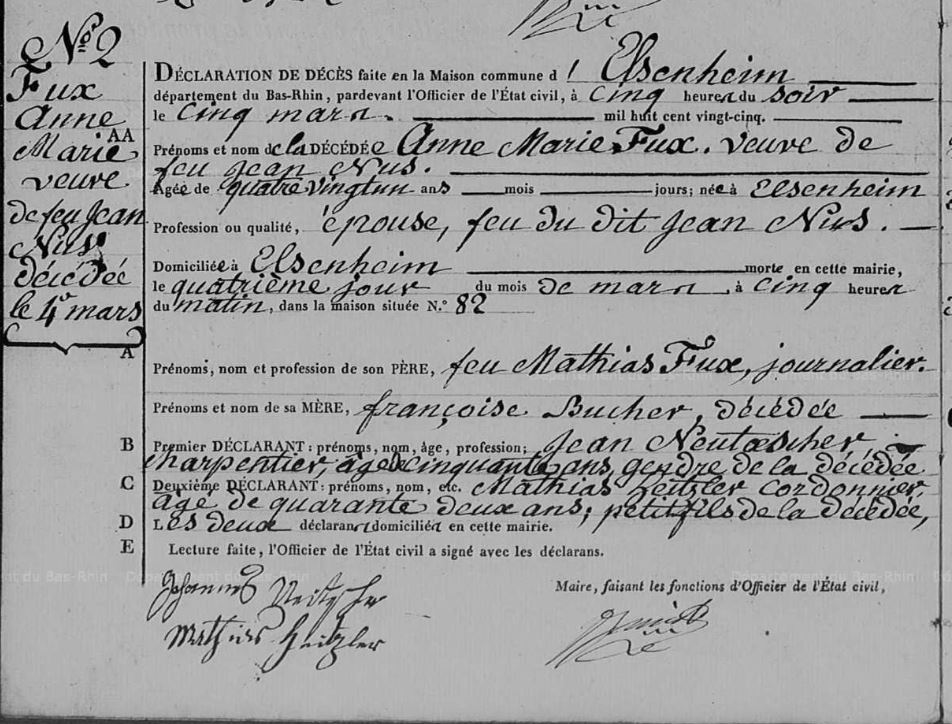 N.º 2
Fux
Anne
Marie
veuve
de feu Jean
Nus
décédée
le 4e mars
DÉCLARATION DE DÉCÈS faite en la Maison commune d' Elsenheim
département du Bas-Rhin, pardevant l'Officier de l'État civil, à cinq heures du soir
le cinq mars. mil huit cent vingt-cinq.
AA
Prénoms et nom de la DÉCÉDÉe Anne Marie Fux. veuve de
feu Jean Nus.
Agée de quatre vingt un ans mois jours; née à Elsenheim
Profession ou qualité, épouse, feu du dit Jean Nus.
Domiciliée à Elsenheim morte en cette mairie,
le quatrième jour du mois de mars à cinq heures
du matin, dans la maison située N.º 82
A
Prénoms, nom et profession de son PÈRE, feu Mathias Fux, journalier.
Prénoms et nom de sa MÈRE, françoise Bucher, décédée
B Premier DÉCLARANT: prénoms, nom, âge, profession; Jean Neutascher
charpentier, âgé cinquante ans, gendre de la décédée
C Deuxième DÉCLARANT: prénoms, nom, etc. Mathias Heitzler cordonnier
âgé de quarante deux ans; petit fils de la décédée,
D Les deux déclarans domiciliés en cette mairie.
E Lecture faite, l'Officier de l'État civil a signé avec les déclarans.
Département du Bas-Rhin
Maire, faisant les fonctions d'Officier de l'État civil,
Johannes
Mathias Heitzler